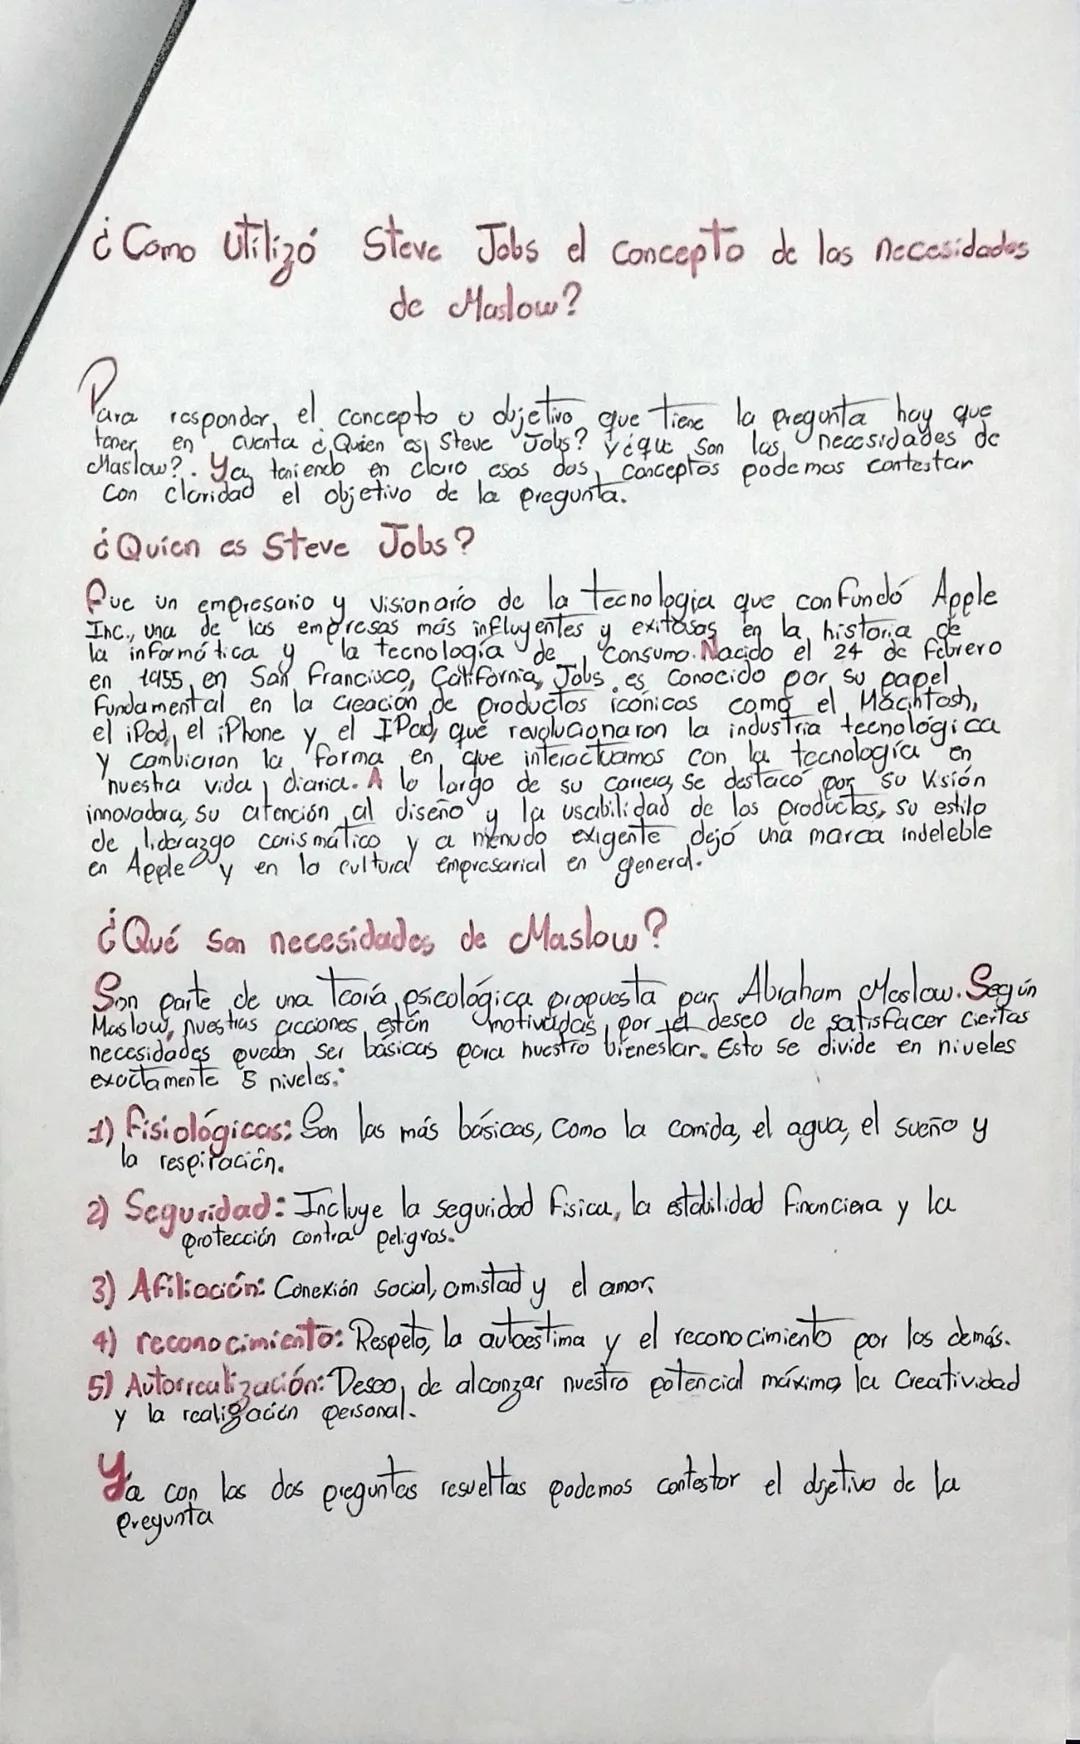 ¿Como Utilizó Steve Jobs el concepto de las necesidades
de Maslow?
Para responder, el concepto u objetivo que tiene la pregunta hay que
tener en cuenta ¿Quien es Steve Jobs? y ¿que son las necesidades de
Maslow?. Ya teniendo en claro esos dos conceptos podemos contestar
con claridad el objetivo de la pregunta.
¿Quien es Steve Jobs?
Fue un empresario y visionario de la tecnologia que confundó Apple
Inc., una de las empresas más influyentes y exitosas en la historia de
la informática y la tecnología de consumo. Nacido el 24 de febrero
en 1955, en San Francisco, California, Jobs es conocido por su papel
fundamental en la creación de productos icónicos como el Macintosh,
el iPod, el iPhone y el IPad, que revolucionaron la industria tecnológica
y cambiaron la forma en que interactuamos con la tecnología en
nuestra vida diaria. A lo largo de su carrera, se destacó por su visión
innovadora, su atención al diseño y la usabilidad de los productos, su estilo
de liderazgo carismático y a menudo exigente dejó una marca indeleble
en Apple y en la cultura empresarial en general.
¿Qué son necesidades de Maslow?
Son parte de una teoría psicológica propuesta por Abraham Maslow. Según
Maslow, nuestras acciones están motivadas por el deseo de satisfacer ciertas
necesidades pueden ser básicas para nuestro bienestar. Esto se divide en niveles
exactamente 5 niveles:
1) Fisiológicas: Son las más básicas, Como la comida, el agua, el sueño y
la respiración.
2) Seguridad: Incluye la seguridad fisica, la estabilidad financiera y la
protección contra peligros.
3) Afiliación: Conexión social, amistad y el amor.
4) reconocimiento: Respeto, la autoestima y el reconocimiento por los demás.
5) Autorrealización: Deseo, de alcanzar nuestro potencial máximo, la creatividad
y la realización personal.
Ya con las dos preguntas resueltas podemos contestar el objetivo de la
pregunta